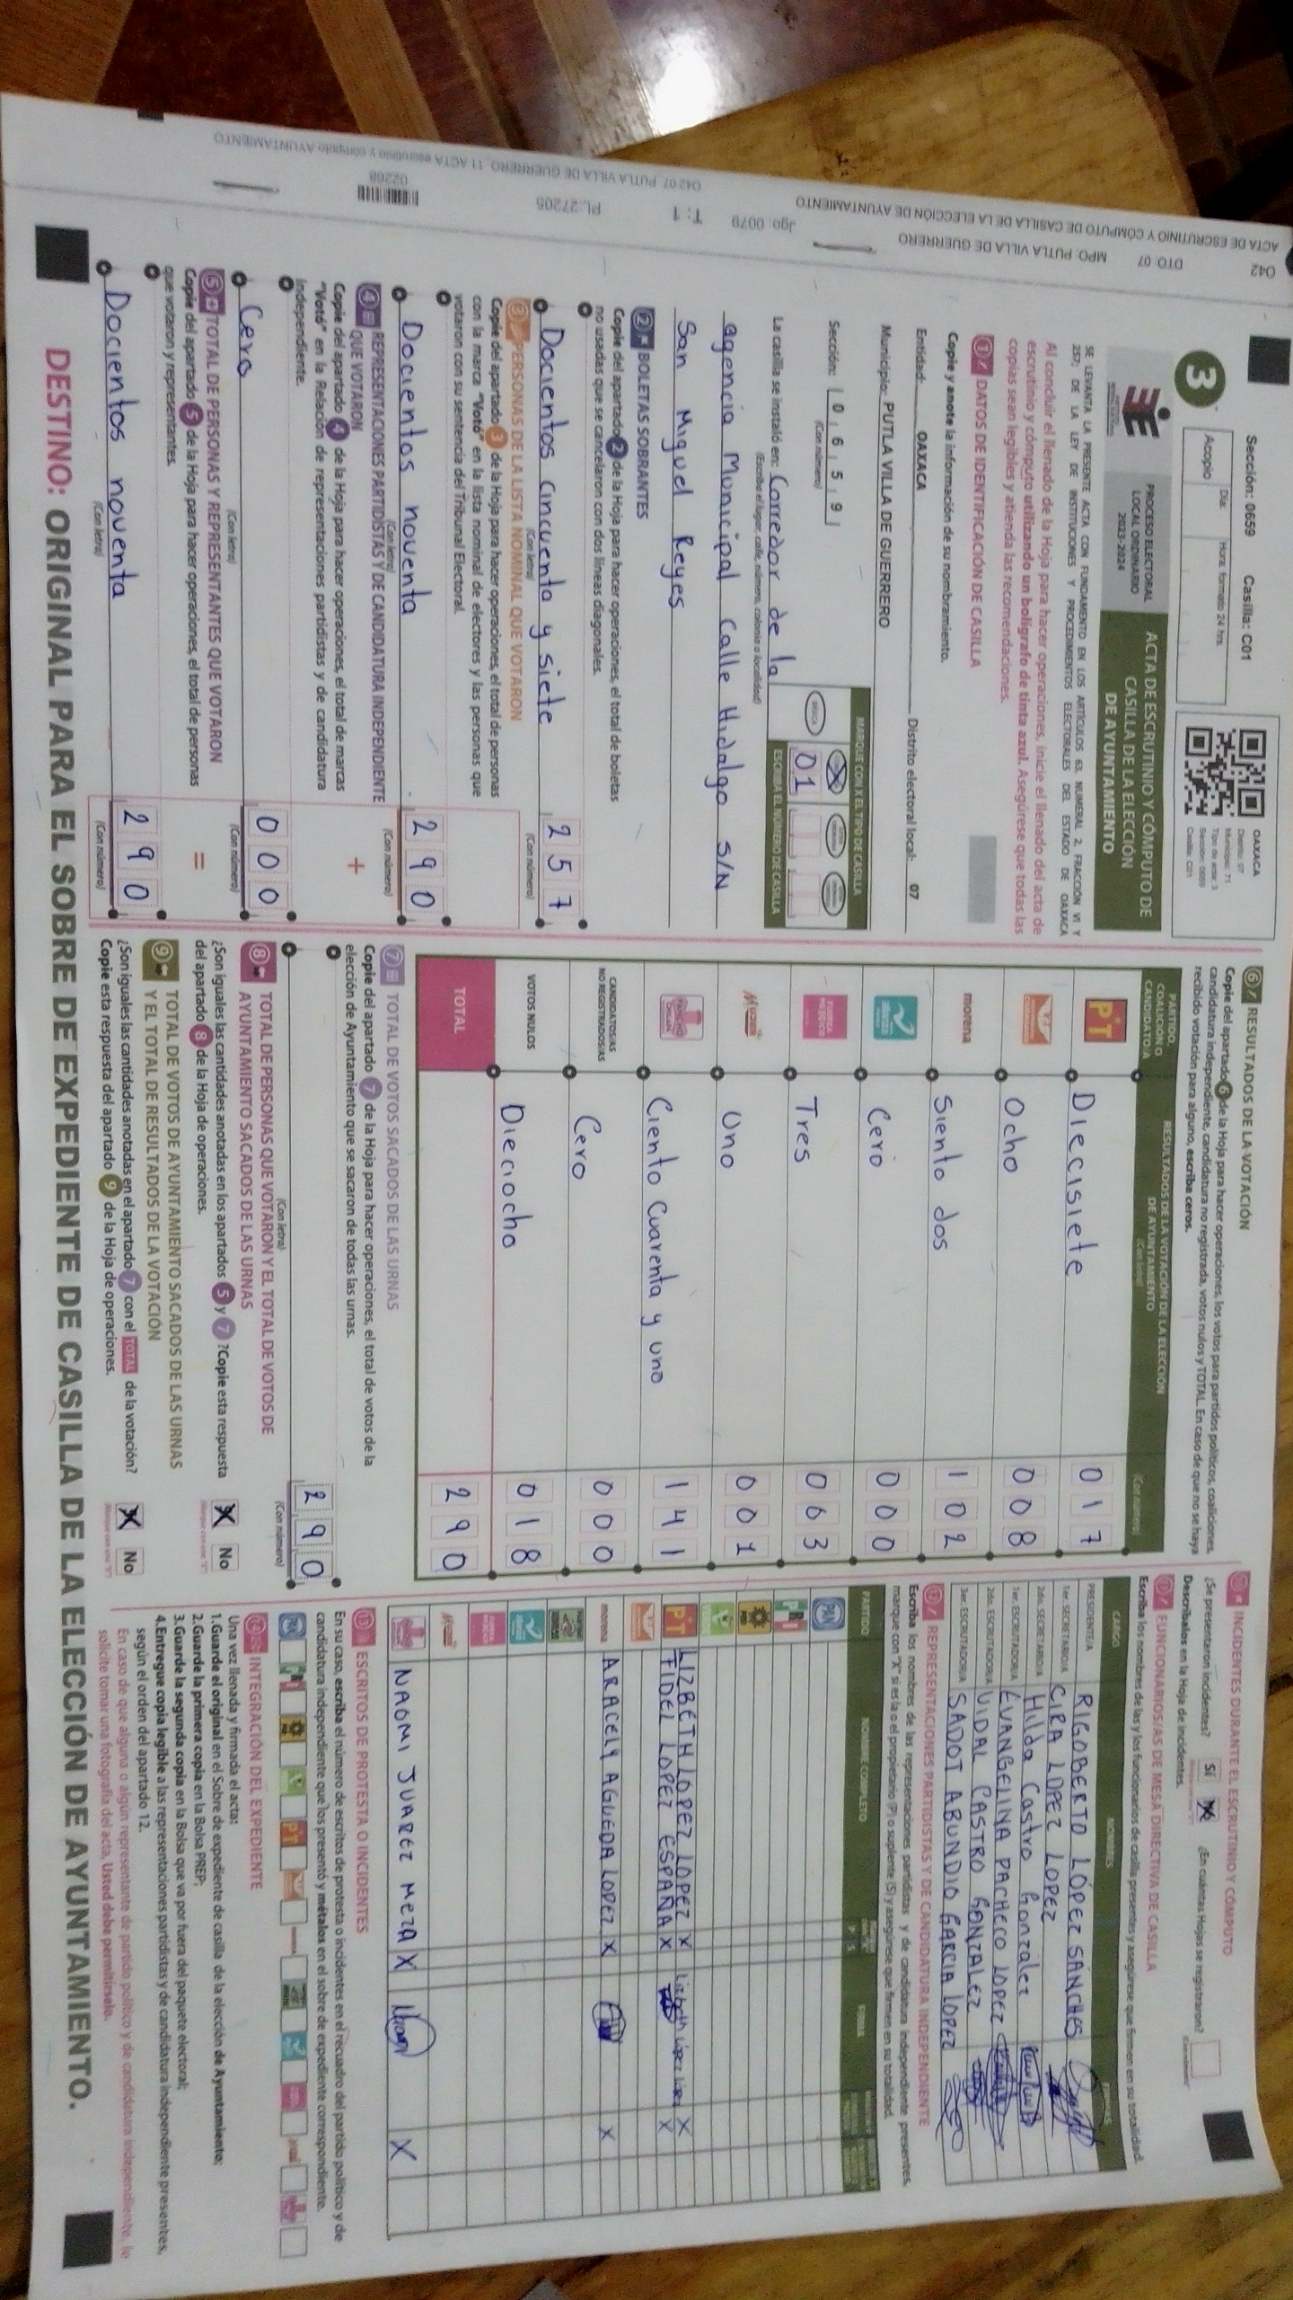 Sección: 0659 Casilla: C01
Día: Hora: formato 24 hrs.
Acopio
3
OAXACA
Distrito: 07
Municipio: 71
Sección: 0659
Casilla: C01
PROCESO ELECTORAL
LOCAL ORDINARIO
2023-2024
ACTA DE ESCRUTINIO Y CÓMPUTO DE
CASILLA DE LA ELECCIÓN
DE AYUNTAMIENTO
SE LEVANTA LA PRESENTE ACTA CON FUNDAMENTO EN LOS ARTÍCULOS 63, NUMERAL 2, FRACCIÓN VI Y
237; DE LA LEY DE INSTITUCIONES Y PROCEDIMIENTOS ELECTORALES DEL ESTADO DE OAXACA
Al concluir el llenado de la Hoja para hacer operaciones, inicie el llenado del acta de
escrutinio y cómputo utilizando un bolígrafo de tinta azul. Asegúrese que todas las
copias sean legibles y atienda las recomendaciones.
1 DATOS DE IDENTIFICACIÓN DE CASILLA
Copie y anote la información de su nombramiento.
Entidad: OAXACA Distrito electoral local: 07
Municipio: PUTLA VILLA DE GUERRERO
Sección: 0 6 5 9
(Con número)
MARQUE CON X EL TIPO DE CASILLA
01
ESCRIBA EL NÚMERO DE CASILLA
La casilla se instaló en: Corredor de la
(Escriba el lugar, calle, número, colonia o localidad)
agencia Municipal Calle Hidalgo S/N
San Miguel Reyes
2 BOLETAS SOBRANTES
Copie del apartado 2 de la Hoja para hacer operaciones, el total de boletas
no usadas que se cancelaron con dos líneas diagonales.
Docientos cincuenta y siete 2 5 7
(Con letra) (Con número)
3 PERSONAS DE LA LISTA NOMINAL QUE VOTARON
Copie del apartado 3 de la Hoja para hacer operaciones, el total de personas
con la marca "Votó" en la lista nominal de electores y las personas que
votaron con su sentencia del Tribunal Electoral.
Docientos noventa 2 9 0
(Con letra) (Con número)
4 REPRESENTACIONES PARTIDISTAS Y DE CANDIDATURA INDEPENDIENTE
QUE VOTARON +
Copie del apartado 4 de la Hoja para hacer operaciones, el total de marcas
"Votó" en la Relación de representaciones partidistas y de candidatura
independiente.
Cero 0 0 0
(Con letra) (Con número)
5 TOTAL DE PERSONAS Y REPRESENTANTES QUE VOTARON =
Copie del apartado 5 de la Hoja para hacer operaciones, el total de personas
que votaron y representantes.
Docientos noventa 2 9 0
(Con letra) (Con número)
6 RESULTADOS DE LA VOTACIÓN
Copie del apartado 6 de la Hoja para hacer operaciones, los votos para partidos políticos, coaliciones,
candidatura independiente, candidatura no registrada, votos nulos y TOTAL. En caso de que no se haya
recibido votación para alguno, escriba ceros.
PARTIDO, COALICIÓN O CANDIDATO/A
RESULTADOS DE LA VOTACIÓN DE LA ELECCIÓN DE AYUNTAMIENTO
(Con letra) (Con número)
PT Diecisiete 0 1 7
Ocho 0 0 8
morena Siento dos 1 0 2
Cero 0 0 0
FUERZA MÉXICO Tres 0 6 3
Mujer Uno 0 0 1
Ciento Cuarenta y uno 1 4 1
CANDIDATOS/AS NO REGISTRADOS/AS Cero 0 0 0
VOTOS NULOS Dieciocho 0 1 8
TOTAL 2 9 0
7 TOTAL DE VOTOS SACADOS DE LAS URNAS
Copie del apartado 7 de la Hoja para hacer operaciones, el total de votos de la
elección de Ayuntamiento que se sacaron de todas las urnas.
2 9 0
(Con letra) (Con número)
8 TOTAL DE PERSONAS QUE VOTARON Y EL TOTAL DE VOTOS DE
AYUNTAMIENTO SACADOS DE LAS URNAS
¿Son iguales las cantidades anotadas en los apartados 5 y 7? Copie esta respuesta
del apartado 8 de la Hoja de operaciones. X No
9 TOTAL DE VOTOS DE AYUNTAMIENTO SACADOS DE LAS URNAS
Y EL TOTAL DE RESULTADOS DE LA VOTACIÓN
¿Son iguales las cantidades anotadas en el apartado 7 con el TOTAL de la votación?
Copie esta respuesta del apartado 9 de la Hoja de operaciones. X No
INCIDENTES DURANTE EL ESCRUTINIO Y CÓMPUTO
¿Se presentaron incidentes? Sí ¿En cuántas Hojas se registraron?
Descríbalos en la Hoja de incidentes.
FUNCIONARIOS/AS DE MESA DIRECTIVA DE CASILLA
Escriba los nombres de las y los funcionarios de casilla presentes y asegúrese que firmen en su totalidad.
CARGO NOMBRES FIRMAS
PRESIDENTE/A RIGOBERTO LÓPEZ SANCHES
1er. SECRETARIO/A CIRA LOPEZ LOPEZ
2do. SECRETARIO/A Hilda Castro Gonzalez
1er. ESCRUTADOR/A EVANGELINA PACHECO LOPEZ
2do. ESCRUTADOR/A VIDAL CASTRO GONZALEZ
3er. ESCRUTADOR/A SADOT ABUNDIO GARCIA LOPEZ
REPRESENTACIONES PARTIDISTAS Y DE CANDIDATURA INDEPENDIENTE
Escriba los nombres de las representaciones partidistas y de candidatura independiente presentes,
marque con "X" si es la o el propietario (P) o suplente (S) y asegúrese que firmen en su totalidad.
PARTIDO NOMBRE COMPLETO P S FIRMA
PAN
PRI
PRD
VERDE
PT LIZBETH LOPEZ LOPEZ X Lizbeth López López X
FIDEL LOPEZ ESPAÑA X X
morena ARACELY AGUEDA LOPEZ X X
NAOMI JUAREZ MEZA X X
ESCRITOS DE PROTESTA O INCIDENTES
En su caso, escriba el número de escritos de protesta o incidentes en el recuadro del partido político y de
candidatura independiente que los presentó y métalos en el sobre de expediente correspondiente.
14 INTEGRACIÓN DEL EXPEDIENTE
Una vez llenada y firmada el acta:
1.Guarde el original en el Sobre de expediente de casilla de la elección de Ayuntamiento;
2.Guarde la primera copia en la Bolsa PREP;
3.Guarde la segunda copia en la Bolsa que va por fuera del paquete electoral;
4.Entregue copia legible a las representaciones partidistas y de candidatura independiente presentes,
según el orden del apartado 12.
En caso de que alguna o algún representante de partido político y de candidatura independiente, le
solicite tomar una fotografía del acta, Usted debe permitírselo.
DESTINO: ORIGINAL PARA EL SOBRE DE EXPEDIENTE DE CASILLA DE LA ELECCIÓN DE AYUNTAMIENTO.
ACTA DE ESCRUTINIO Y CÓMPUTO DE CASILLA DE LA ELECCIÓN DE AYUNTAMIENTO
042 DTO. 07 MPO. PUTLA VILLA DE GUERRERO
Jgo. 0079 T: 1 PL:27205
02268
042 07 PUTLA VILLA DE GUERRERO 11 ACTA escrutinio y cómputo AYUNTAMIENTO